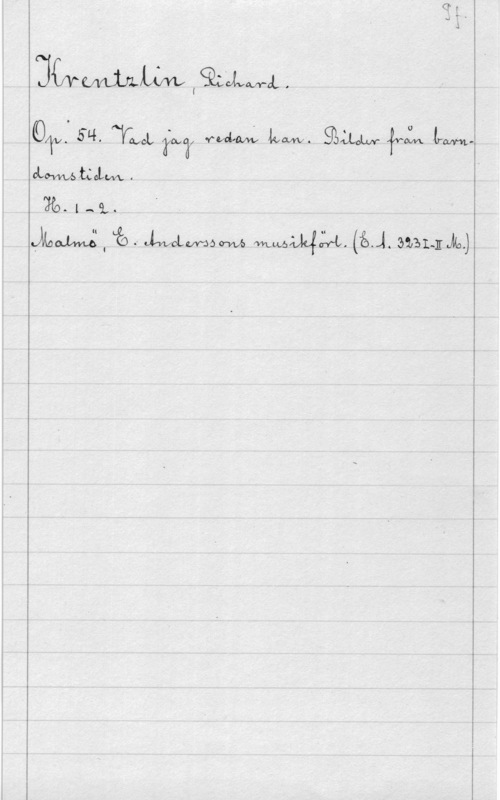 Krentzlin, Richard.
Op. 54. Vad jag redan kan. Bilder från barn-
domstiden.
H. 1-2.
Malmö, E. Anderssons musikförl. (E.A. 323 I-II M.)